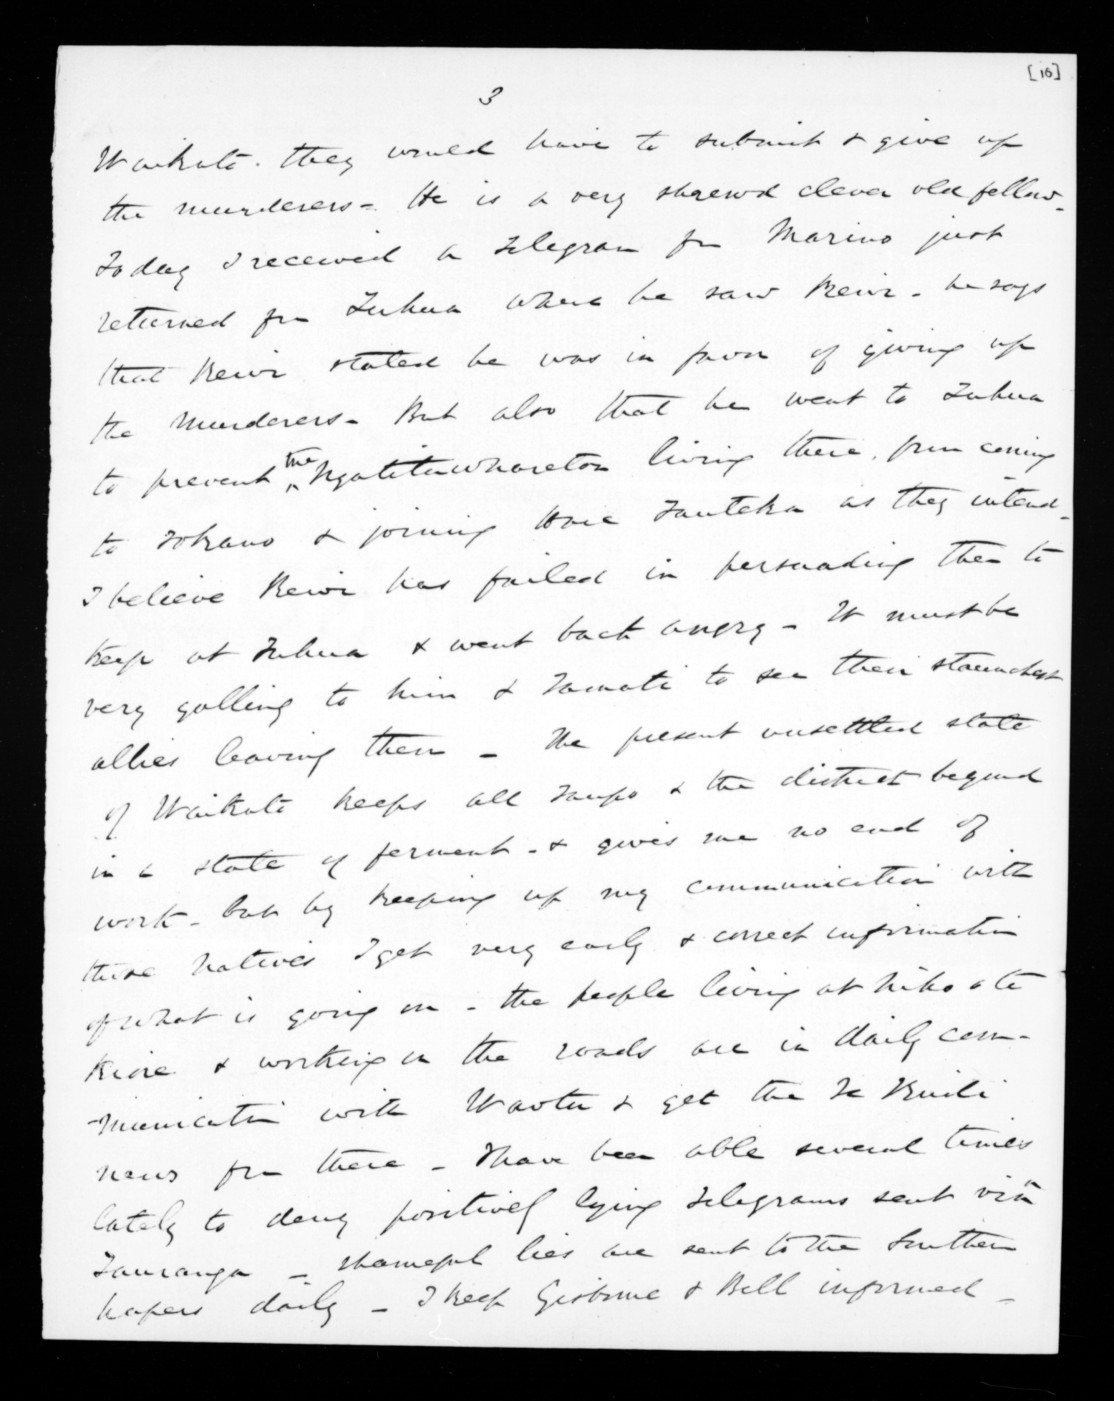 [16]
3
Waikato. they would have to submit & give up
the murderers - He is a very shrewd clever old fellow -
Today I received a Telegram fm Marino just
returned fm Tuhua where he saw Rewi - he says
that Rewi stated he was in favor of giving up
the Murderers - But also that he went to Tuhua
to prevent the Ngatituwharetoa living there, from coming
to Tokano & joining Hare Tauteka as they intend -
I believe Rewi has failed in persuading them to
keep at Tuhua & went back angry - It must be
very galling to him & Tamati to see their staunchest
allies leaving them - The present unsettled state
of Waikato keeps all Taupo & the district beyond
in a state of ferment - & gives me no end of
work - but by keeping up my communication with
those natives I get very early & correct information
of what is going on - the people living at Niho o te
Kiore & working on the roads are in daily com-
-munication with Waotu & get the Te Kuiti
news fm there - I have been able several times
lately to deny positively lying Telegrams sent via
Tauranga - shameful lies are sent to the Southern
papers daily - I keep Gisborne & Bell informed -